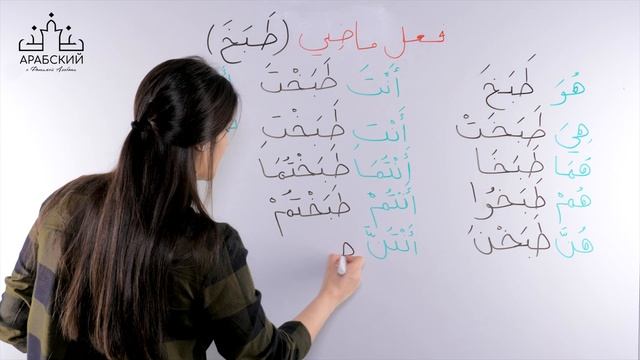 АРАБСКИЙ
فعل ماضِي (طَبَخَ)
هُوَ طَبَخَ
هِيَ طَبَخَتْ
هُمَا طَبَخَا
هُمْ طَبَخُوا
هُنَّ طَبَخْنَ
أَنْتَ طَبَخْتَ
أَنْتِ طَبَخْتِ
أَنْتُمَا طَبَخْتُمَا
أَنْتُمْ طَبَخْتُمْ
أَنْتُنَّ